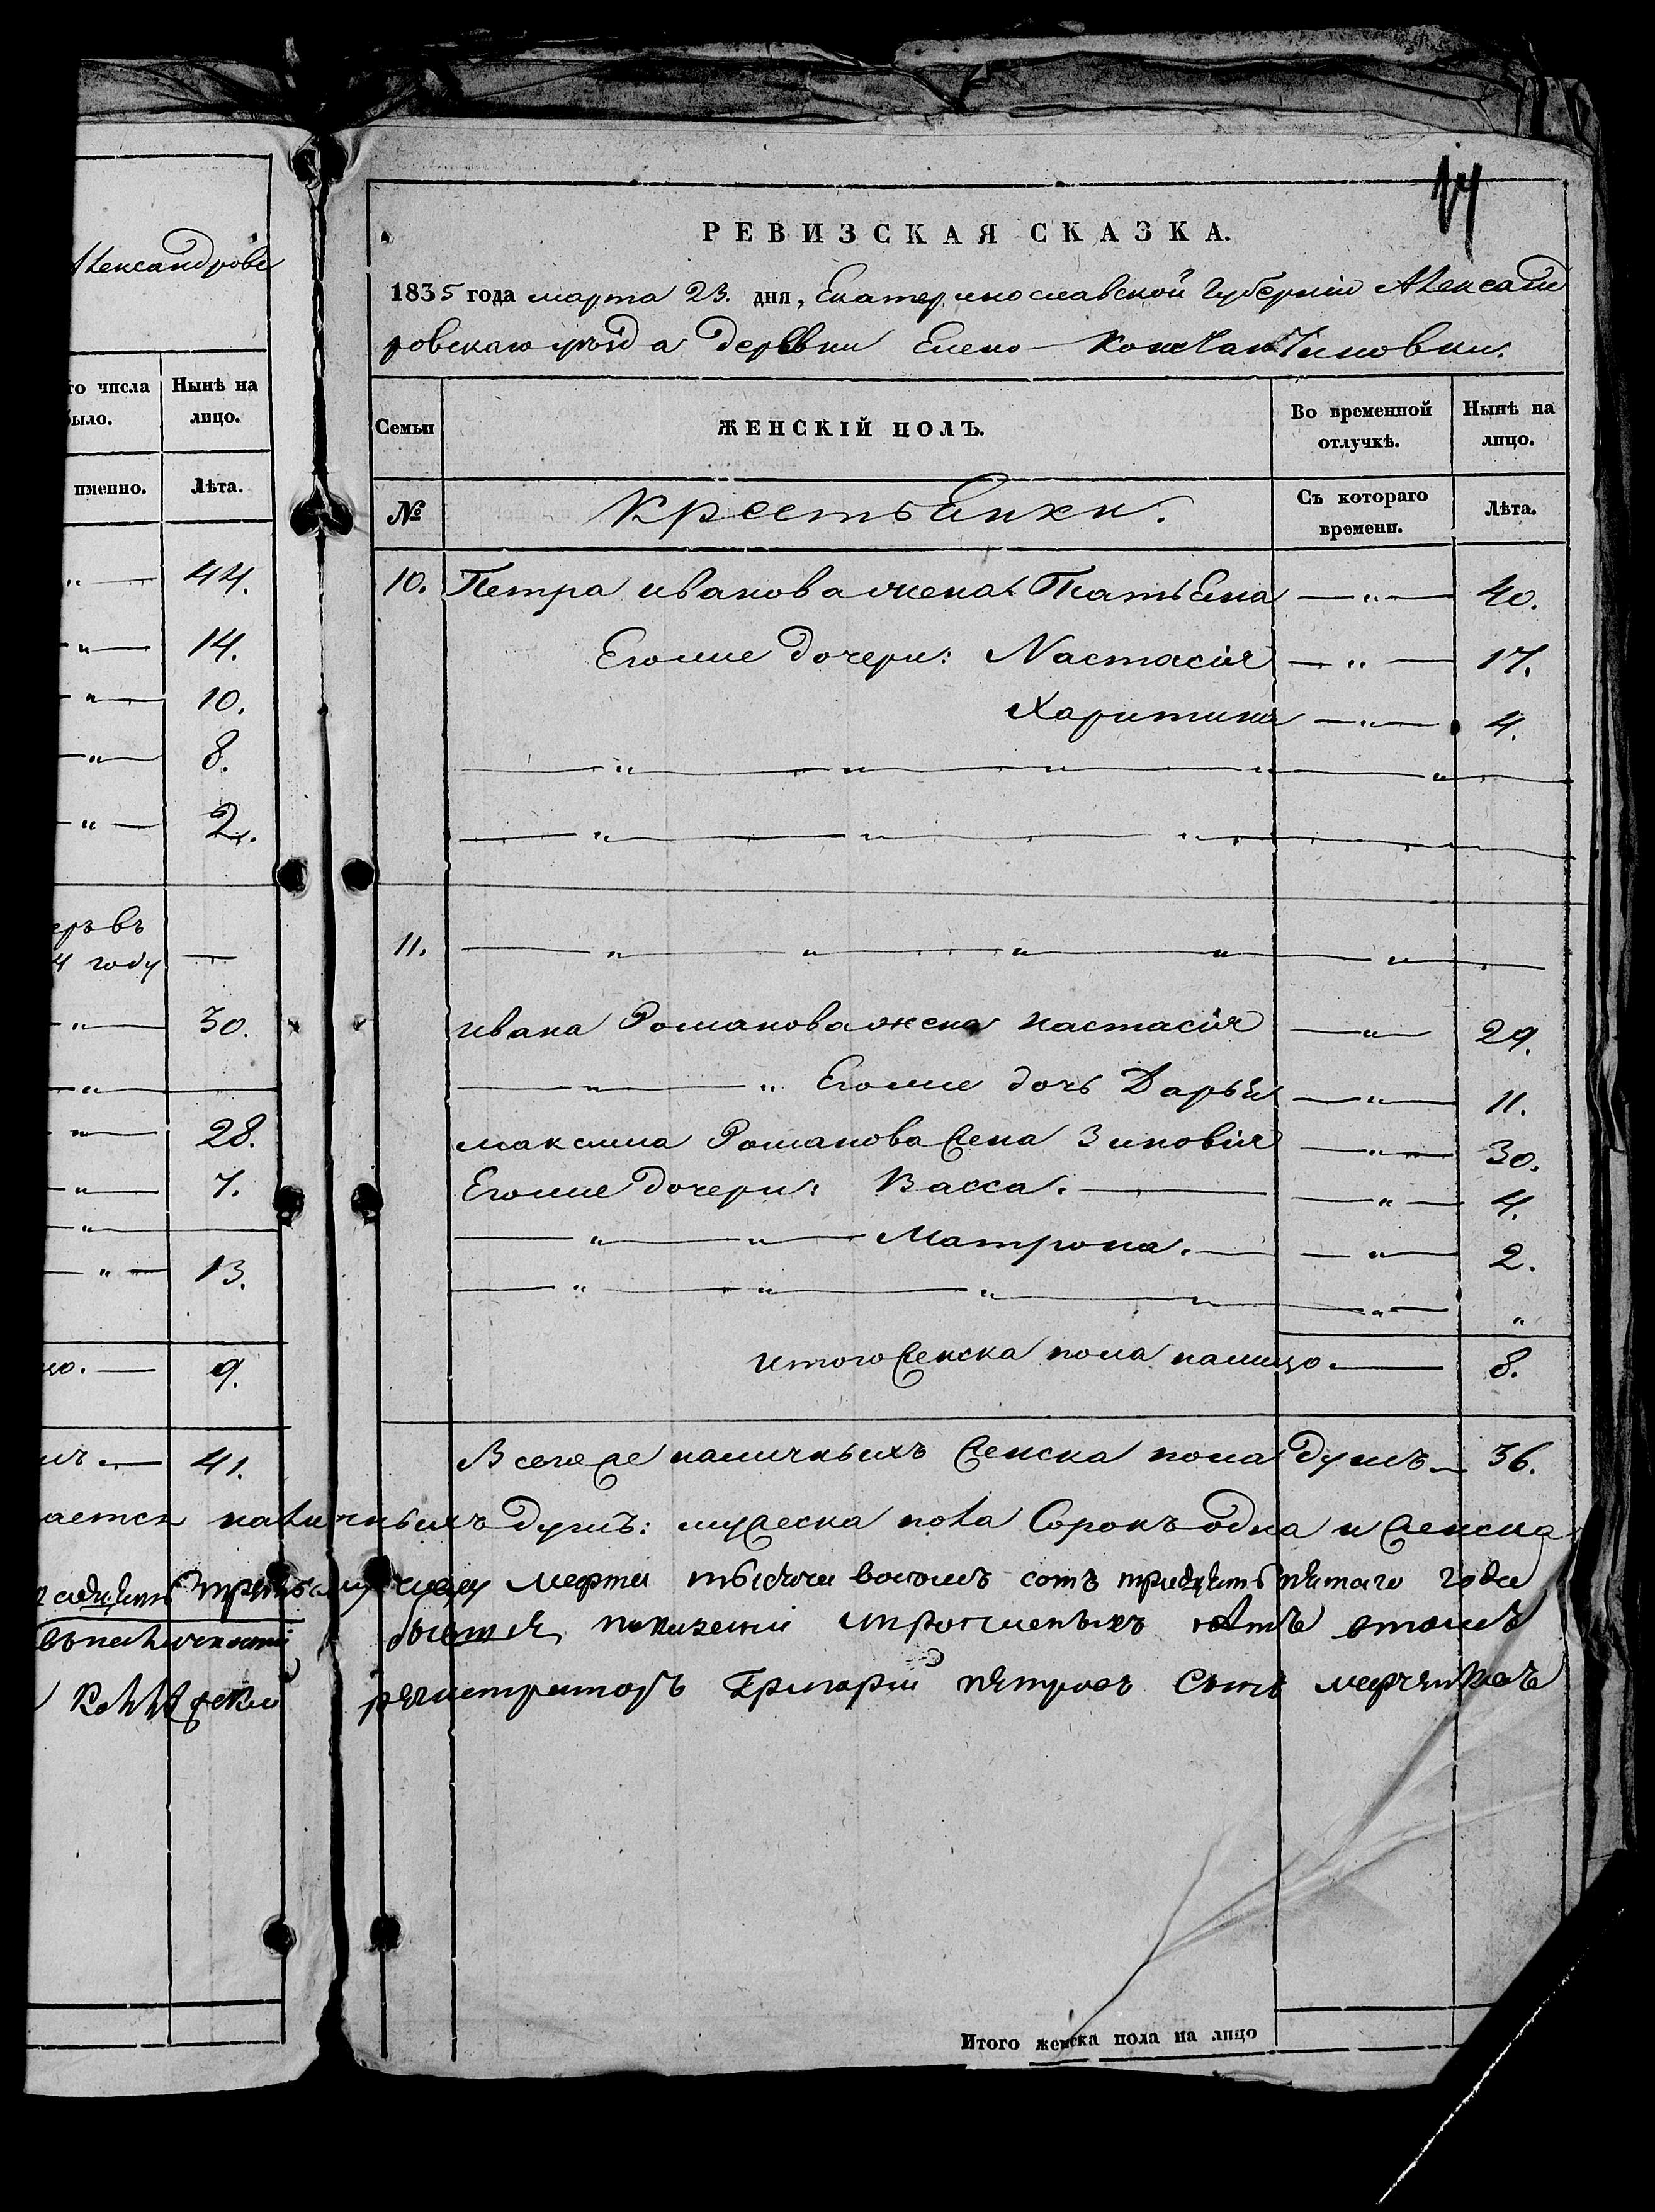 Александровс
го числа
было.
Нынѣ на
лицо.
именно.
Лѣта.
44.
14.
10.
8.
2.
еръ въ
4 году
30.
28.
7.
13.
9.
41.
14
РЕВИЗСКАЯ СКАЗКА.
1835 года марта 23. дня, Екатеринославской Губерніи Александ
ровскаго уѣзда деревни Елено-Константиновки.
Семьи
ЖЕНСКІЙ ПОЛЪ.
Во временной
отлучкѣ.
Нынѣ на
лицо.
№
Крестьянки.
Съ котораго
времени.
Лѣта.
10. Петра иванова жена Татьяна — " — 40.
Егоже дочери: Настасія — " — 17.
Харитина — " — 4.
11. — " — " — " — " — " —
ивана Романова жена настасія — " — 29.
— " — " Егоже дочь Дарья — " — 11.
максима Романова жена Зиновія — " — 30.
Егоже дочери: Васса. — " — 4.
— " — " — Матрона. — " — 2.
итого женска пола налицо. — 8.
Всего же наличныхъ женска пола душъ — 36.
ается наличныхъ душъ: мужеска пола Сорокъ одна и женска
марта тысяча восемъ сотъ тридцать пятаго года
нѣтъ втомъ
регистраторъ Григорій петровъ Сынъ
Итого женска пола на лицо